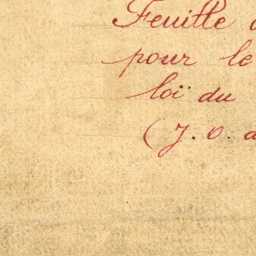 Feuille
pour le
loï du
(J. O.